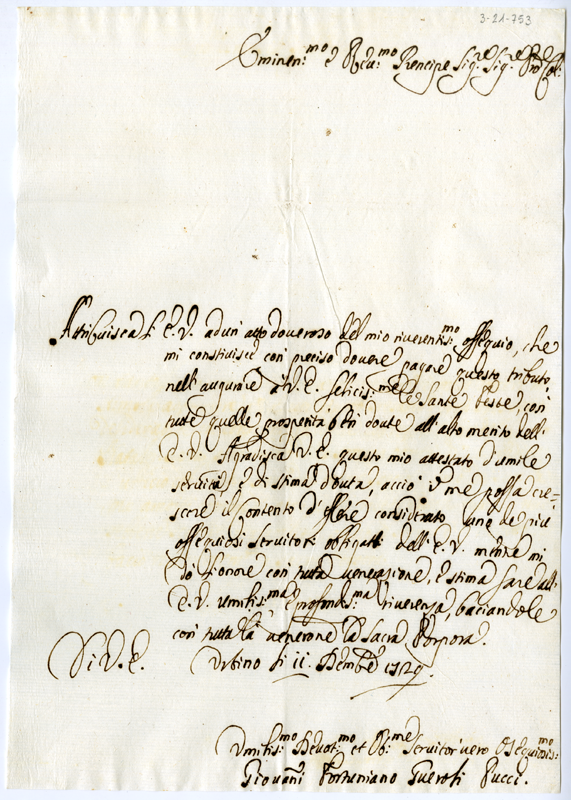 3-21-753
Eminen.mo e Rev.mo Prencipe Sig.re Sig.re Pron Col:
Attribuisca l'E. V. ad un atto doveroso del mio riverentis.mo ossequio, che
mi constituisce con preciso dovere pagare questo tributo
nell'augurare à V. E. felicis:me le Sante Feste, con
tutte quelle prosperità ben doute all'alto merito dell'
E. V. Agradisca V. E. questo mio attestato d'umile
servitù, e di stima douta, acciò in me possa cre=
scere il contento d'essere considerato uno de più
ossequiosi servitori obligati dell'E. V. mentre mi
dò l'onore con tutta venerazione, e stima fare all'
E. V. umilis:ma e profondis:ma riverenza, baciandole
con tutta la venerone la Sacra Porpora.
Di V. E. Urbino li 11. Xbembre 1729.
Umilis:mo Devot:mo et Ob:mo Servitor vero Ossequiosis:mo
Giovanni Fortuniano Gueroli Pucci.